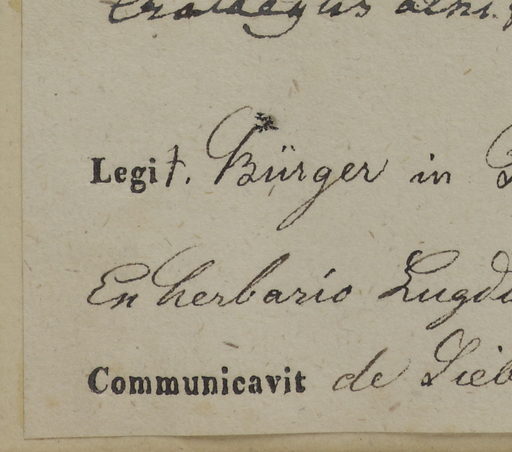 Crataegus alni
Legit. Bürger in
En herbario Lugdu
Communicavit de Sieb